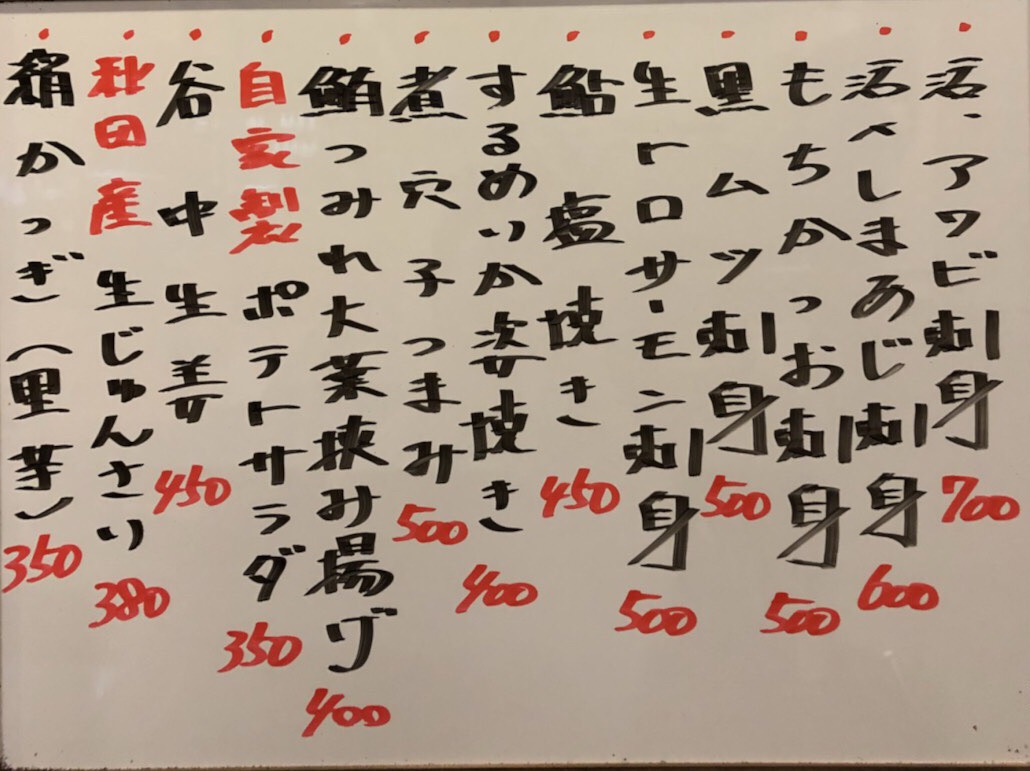 活、アワビ刺身 700
活〆しまあじ刺身 600
もちかつお刺身 500
黒ムツ刺身 500
生トロサーモン刺身 500
鮎塩焼き 450
するめいか姿焼き 400
煮穴子つまみ 500
鮪つみれ大葉挟み揚げ 400
自家製ポテトサラダ 350
谷中生姜 450
秋田産生じゅんさい 380
絹かつぎ（里芋） 350